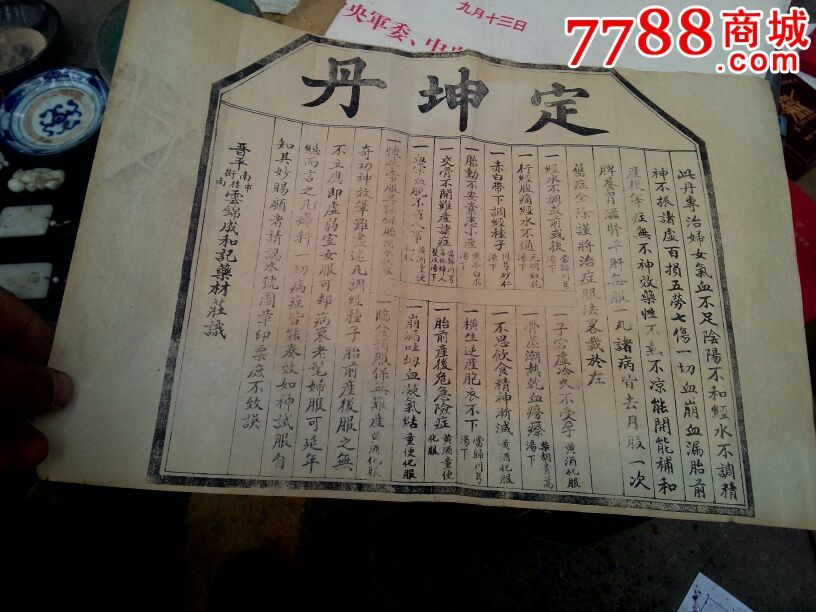 7788商城
九月十三日
央軍委、中
定坤丹
此丹專治婦女氣血不足陰陽不和經水不調精
神不振諸虛百損五勞七傷一切血崩血漏胎前
產後等症無不神效藥性不熱不凉能開能補和
脾養胃滋腎平肝每服一丸諸病皆去月服一次
舊症全除謹將治症服法畧載於左
一經水不調或前或後 當歸川芎湯下
一子宮虛冷久不受孕 黃酒化服
一行經腹痛經水不通 元胡紅花湯下
一骨蒸潮熱乾血癆瘵 柴胡青蒿湯下
一赤白帶下調經種子 川芎砂仁湯下
一不思飲食精神漸減 黃酒化服
一胎動不安葷恚小產 黃芩白朮湯下
一橫生逆產胞衣不下 當歸川芎湯下
一交骨不開難產諸症
一胎前產後危急險症 黃酒童便化服
一血暈血脫不省人事
一崩漏吐衂血凝氣結 童便化服
一懷孕常服
一臨盆預服保無難產 黃酒化服
奇功神效筆難盡述凡調經種子胎前產後服之無
不立應即虛弱室女服可却病衰老髦婦服可延年
總而言之凡婦科一切病症皆能奏效如神試服自
知其妙賜顧者請認本號圖章印票庶不致誤
晉平南市街樓南雲錦成和記藥材莊識